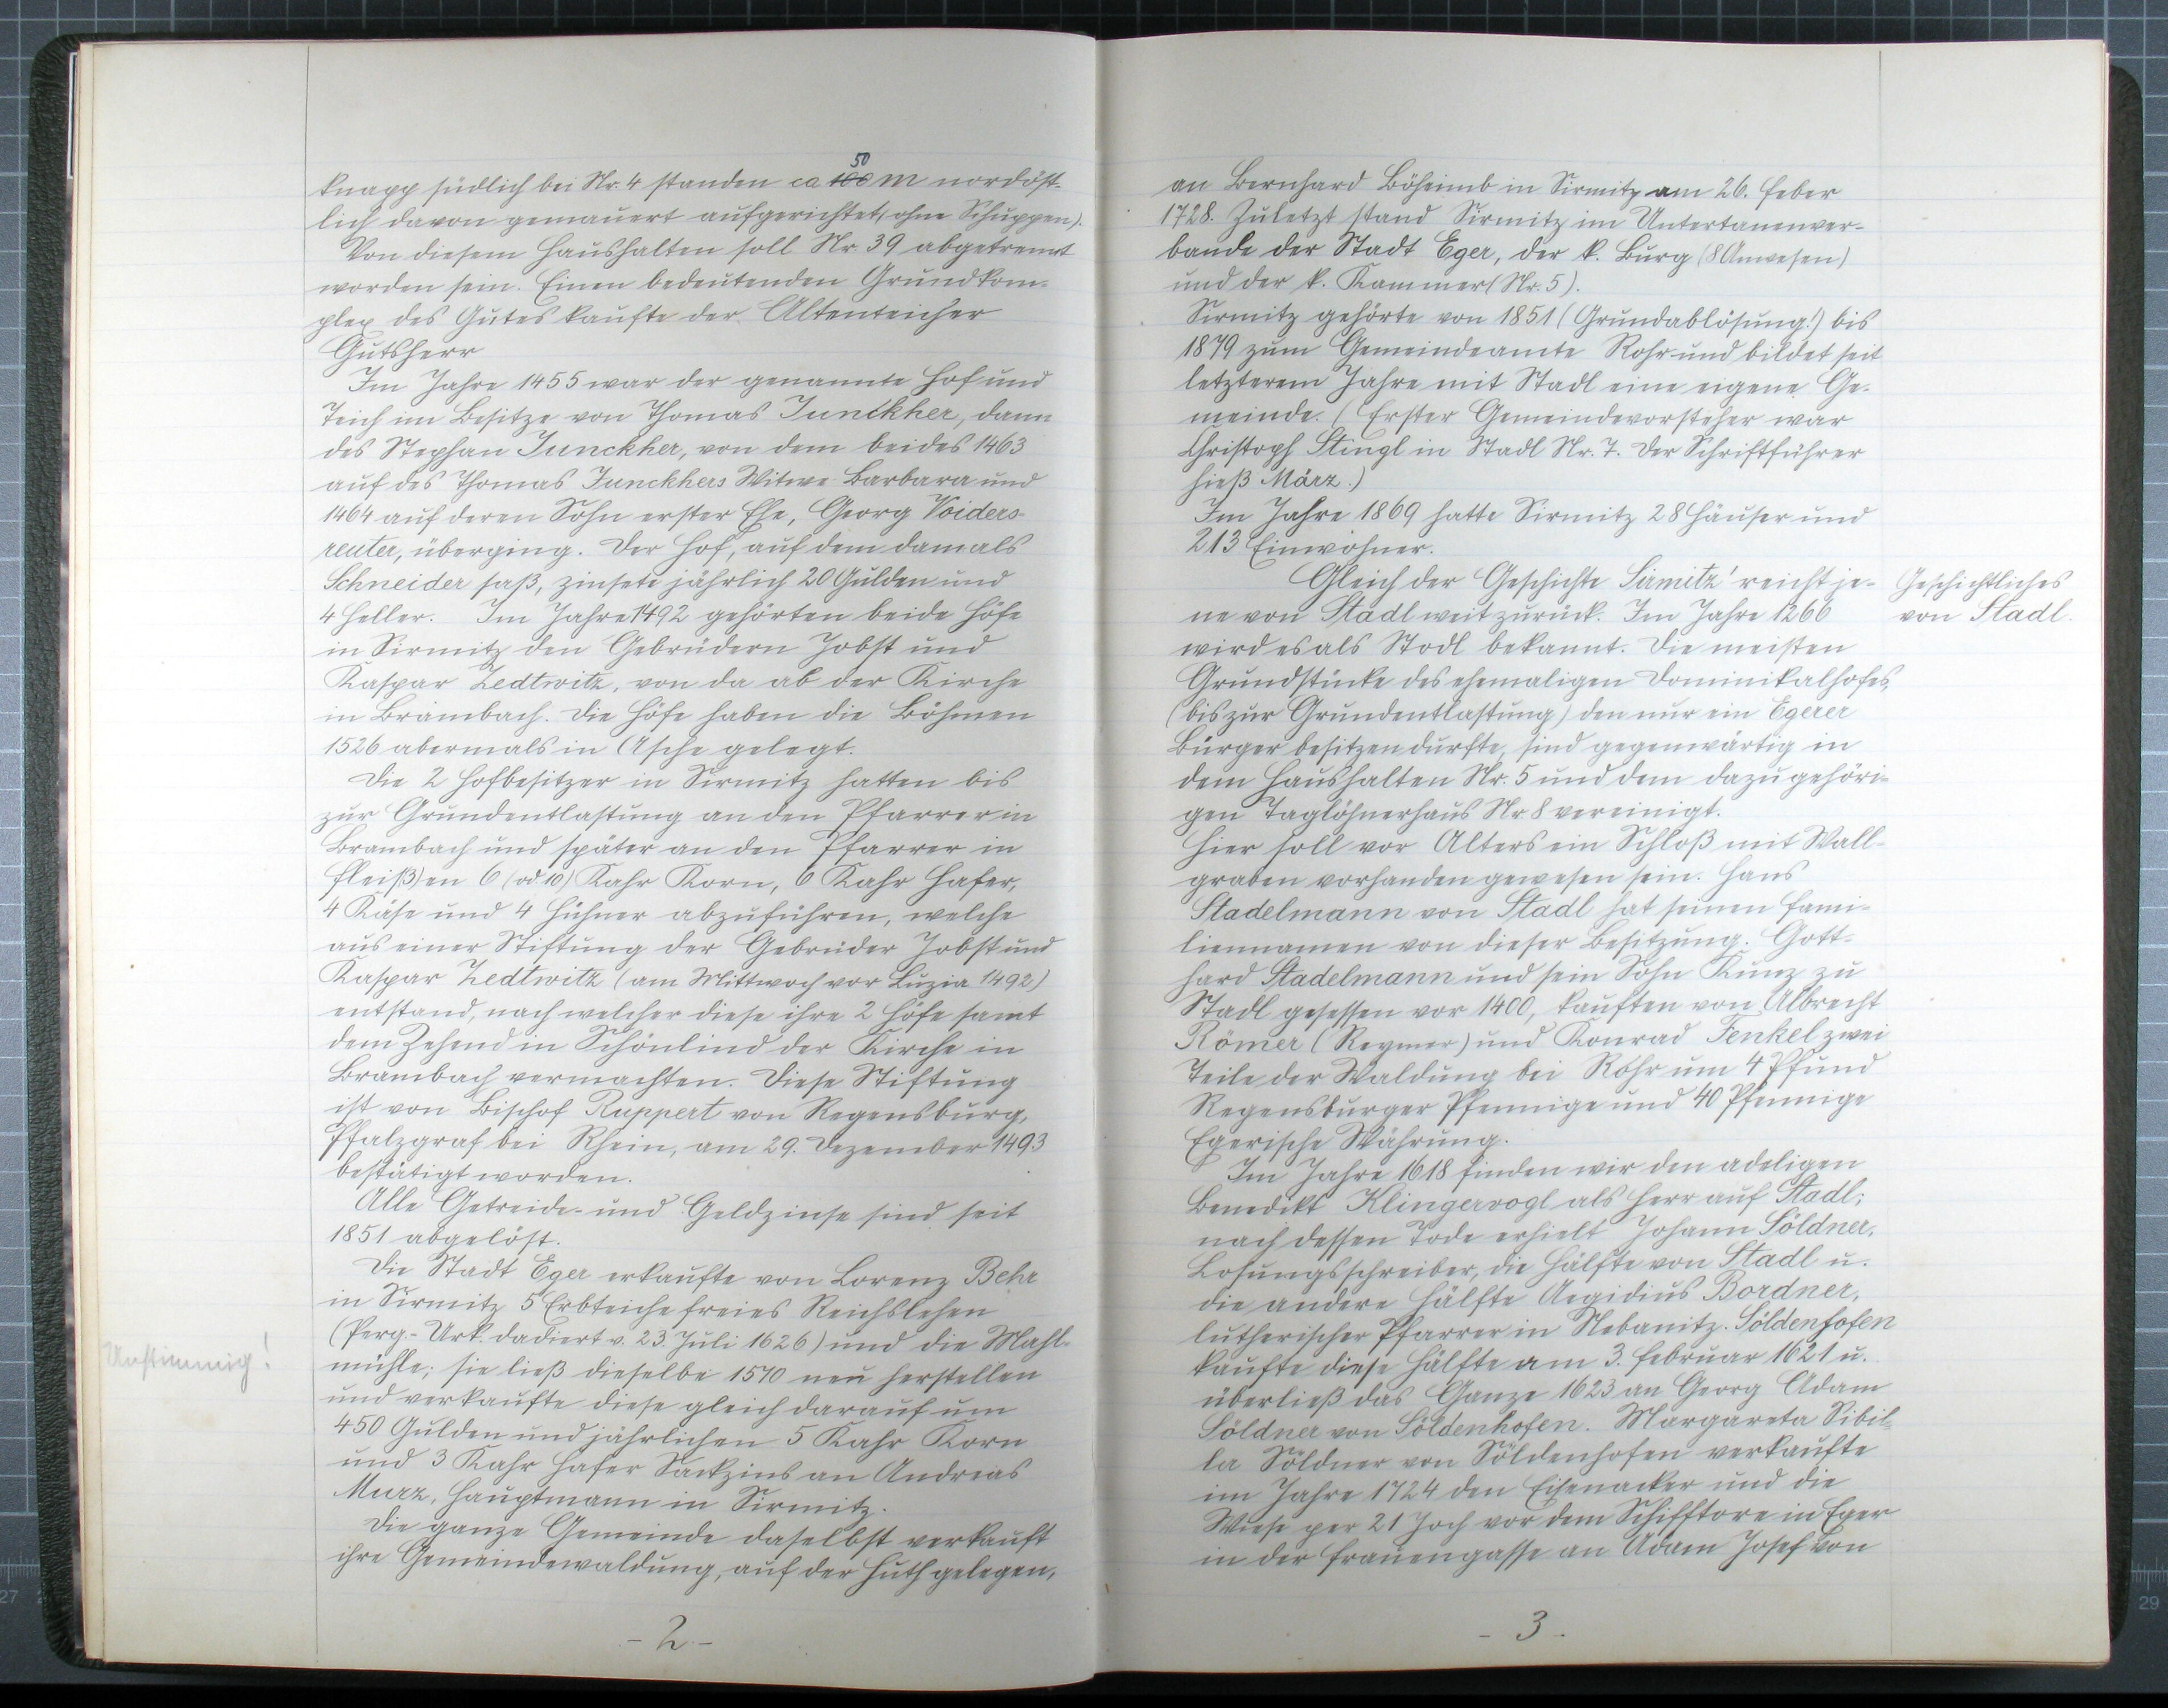 knapp südlich bei Nr. 4 standen ca 100 50 m nordöst-
lich davon gemauert aufgerichtet (ohne Schuppen).
Von diesem Haushalten soll Nr. 39 abgetrennt
worden sein. Einen bedeutenden Grundkom-
plex des Gutes kaufte der Altenteicher
Gutsherr
Im Jahre 1455 war der genannte Hof und
Teich im Besitze von Thomas Junckher, dann
des Stephan Junckher, von dem beides 1463
auf des Thomas Junckhers Witwe Barbara und
1464 auf deren Sohn erster Ehe, Georg Voiders-
reuter, überging. Der Hof, auf dem damals
Schneider saß, zinsete jährlich 20 Gulden und
4 Heller. Im Jahre 1492 gehörten beide Höfe
in Sirmitz den Gebrüdern Jobst und
Kaspar Zedtwitz, von da ab der Kirche
in Brambach. Die Höfe haben die Böhmen
1526 abermals in Asche gelegt.
Die 2 Hofbesitzer in Sirmitz hatten bis
zur Grundentlastung an den Pfarrer in
Brambach und später an den Pfarrer in
Fleißen 6 (od. 10) Kahr Korn, 6 Kahr Hafer,
4 Käse und 4 Hühner abzuführen, welche
aus einer Stiftung der Gebrüder Jobst und
Kaspar Zedtwitz (am Mittwoch vor Luzia 1492)
entstand, nach welcher diese ihre 2 Höfe samt
dem Zehend in Schönlind der Kirche in
Brambach vermachten. Diese Stiftung
ist von Bischof Ruppert von Regensburg,
Pfalzgraf bei Rhein, am 29. Dezember 1493
bestätigt worden.
Alle Getreide- und Geldzinse sind seit
1851 abgelöst.
Die Stadt Eger erkaufte von Lorenz Behr
in Sirmitz 5 Erbteiche freies Reichslehen
(Perg.-Urk. dadiert v. 23. Juli 1626) und die Mahl-
Unstimmig!
mühle; sie ließ dieselbe 1570 neu herstellen
und verkaufte diese gleich darauf um
450 Gulden und jährlichen 5 Kahr Korn
und 3 Kahr Hafer Sackzins an Andreas
Murz, Hauptmann in Sirmitz.
Die ganze Gemeinde daselbst verkauft
ihre Gemeindewaldung, auf der Huth gelegen,
- 2 -
an Bernhard Böheimb in Sirmitz am 26. Feber
1728. Zuletzt stand Sirmitz im Untertanenver-
bande der Stadt Eger, der k. Burg (8 Anwesen)
und der k. Kammer (Nr. 5).
Sirmitz gehörte von 1851 (Grundablösung!) bis
1879 zum Gemeindeamte Rohr und bildet seit
letzterem Jahre mit Stadl eine eigene Ge-
meinde. (Erster Gemeindevorsteher war
Christoph Stingl in Stadl Nr. 7. Der Schriftführer
hieß März.)
Im Jahre 1869 hatte Sirmitz 28 Häuser und
213 Einwohner.
Gleich der Geschichte Sirmitz' reicht je-
Geschichtliches
ne von Stadl weit zurück. Im Jahre 1266
von Stadl.
wird es als Stodl bekannt. Die meisten
Grundstücke des ehemaligen Dominikalhofes,
(bis zur Grundentlastung) den nur ein Egerer
Bürger besitzen durfte, sind gegenwärtig in
dem Haushalten Nr. 5 und dem dazu gehöri-
gen Taglöhnerhaus Nr 8 vereinigt.
Hier soll vor Alters ein Schloß mit Wall-
graben vorhanden gewesen sein. Hans
Stadelmann von Stadl hat seinen Fami-
liennamen von dieser Besitzung. Gott-
hard Stadelmann und sein Sohn Kunz zu
Stadl gesessen vor 1400, kauften von Albrecht
Römer (Reymer) und Konrad Fenkel zwei
Teile der Waldung bei Rohr um 4 Pfund
Regensburger Pfennige und 40 Pfennige
Egerische Währung.
Im Jahre 1618 finden wir den adeligen
Benedikt Klingervogl als Herr auf Stadl;
nach dessen Tode erhielt Johann Söldner,
Losungsschreiber, die Hälfte von Stadl u.
die andere Hälfte Aegidius Bordner,
lutherischer Pfarrer in Nebanitz. Söldenhofen
kaufte diese Hälfte am 3. Februar 1621 u.
überließ das Ganze 1623 an Georg Adam
Söldner von Söldenhofen. Margareta Sibil-
la Söldner von Söldenhofen verkaufte
im Jahre 1724 den Eisenacker und die
Wiese per 21 Joch vor dem Schifftore in Eger
in der Frauengasse an Adam Josef von
- 3 -